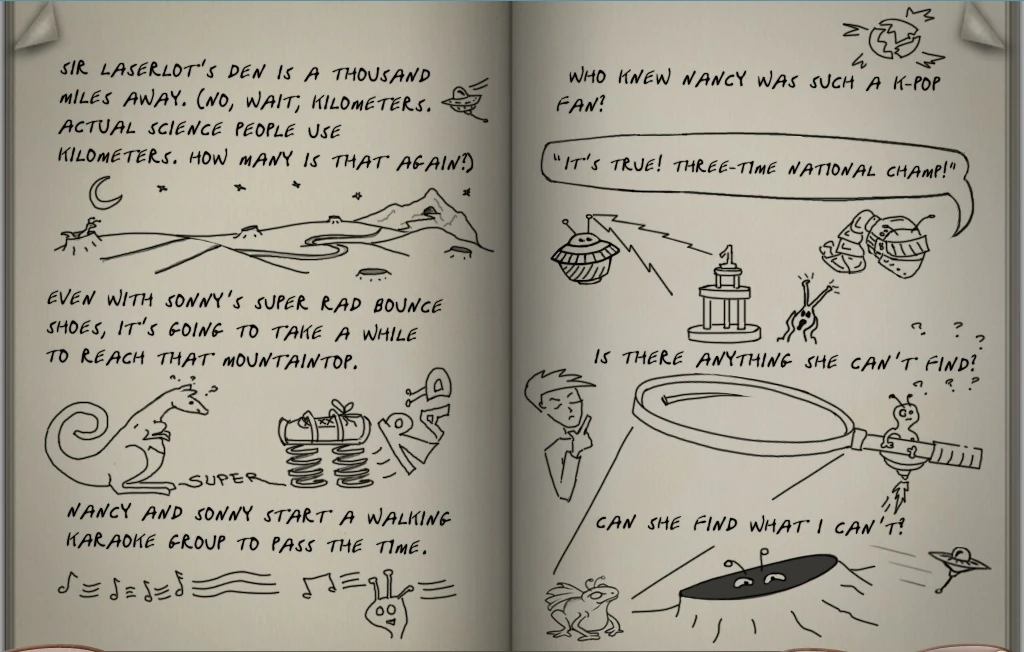 SIR LASERLOT'S DEN IS A THOUSAND
MILES AWAY. (NO, WAIT, KILOMETERS.
ACTUAL SCIENCE PEOPLE USE
KILOMETERS. HOW MANY IS THAT AGAIN?)
EVEN WITH SONNY'S SUPER RAD BOUNCE
SHOES, IT'S GOING TO TAKE A WHILE
TO REACH THAT MOUNTAINTOP.
SUPER
RAD
NANCY AND SONNY START A WALKING
KARAOKE GROUP TO PASS THE TIME.
WHO KNEW NANCY WAS SUCH A K-POP
FAN?
"IT'S TRUE! THREE-TIME NATIONAL CHAMP!"
1
? ? ?
IS THERE ANYTHING SHE CAN'T FIND?
CAN SHE FIND WHAT I CAN'T?